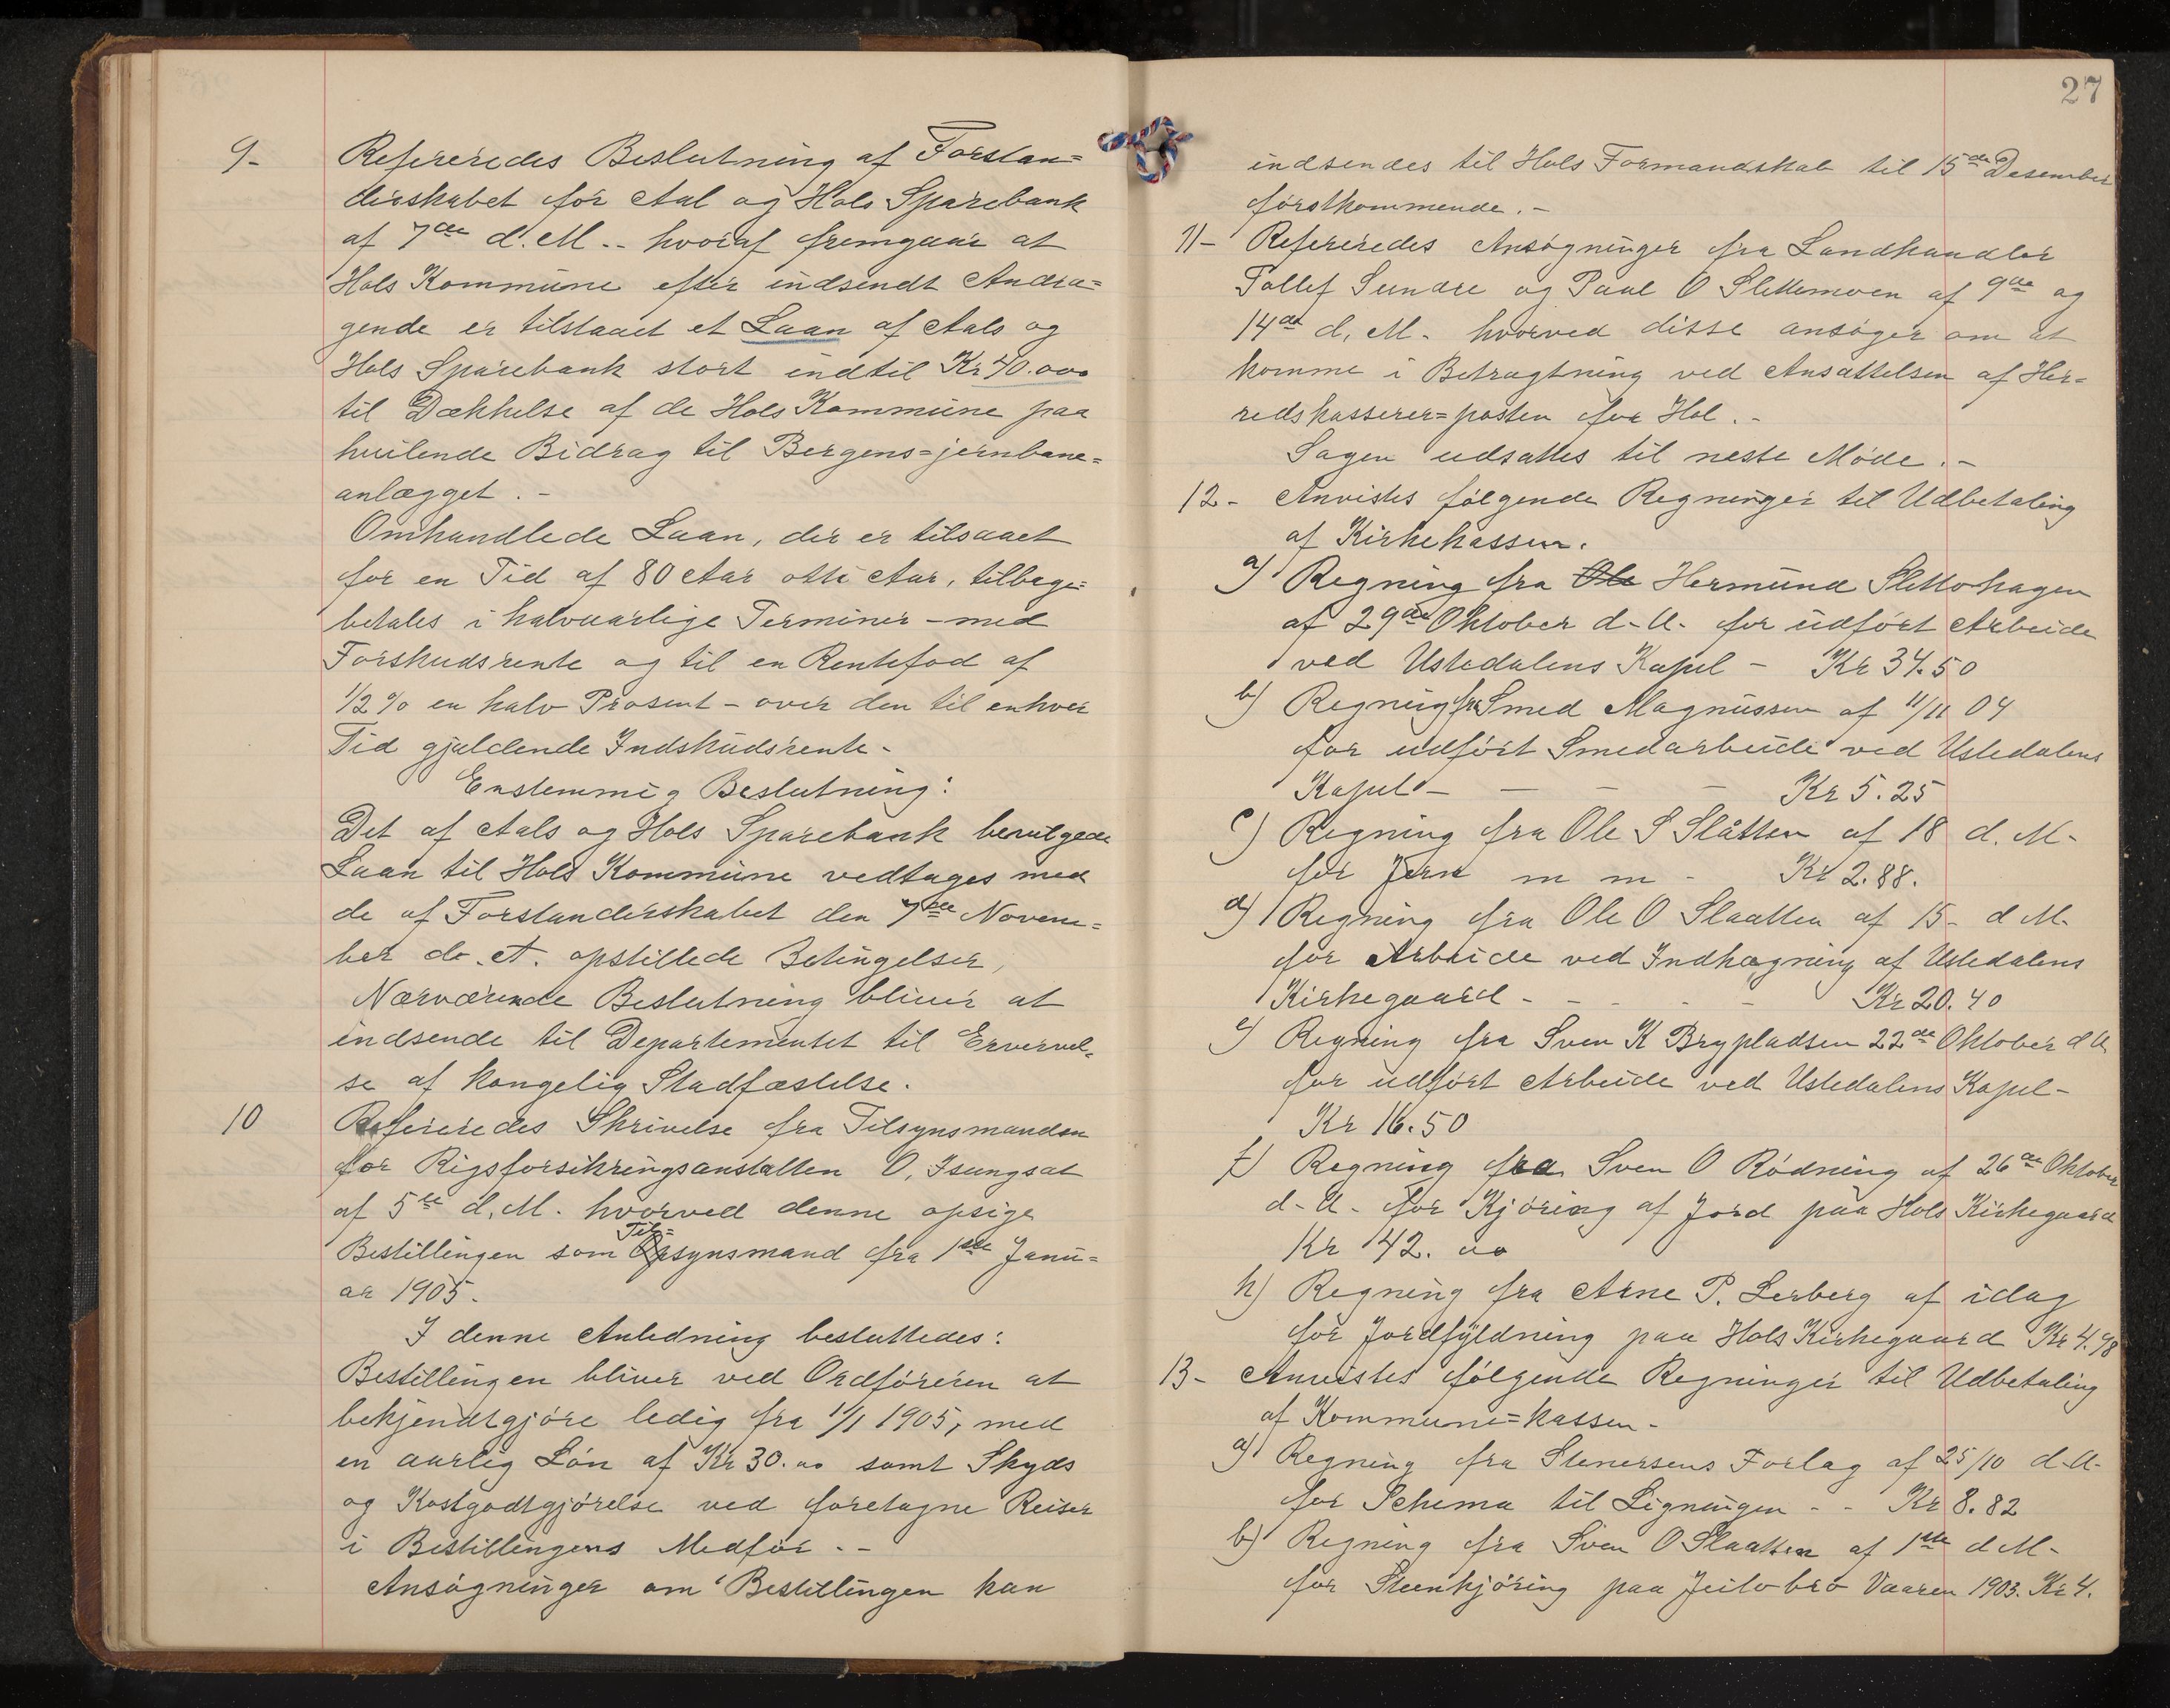 9- Refereredes Beslutning af Forstan=
derskabet for Aal og Hols Sparebank
af 7de d.M.- hvoraf fremgaar at
Hols Kommune efter indsendt Andra=
gende er tilstaaet et Laan af Aals og
Hols Sparebank stort indtil Kr 40.000
til Dækkelse af de Hols Kommune paa
hvilende Bidrag til Bergens=jernbane=
anlægget.-
Omhandlede Laan, der er tilsaaet
for en Tid af 80 Aar otti Aar, tilbage=
betales i halvaarlige Terminer - med
Forskudsrente og til en Rentefod af
1/2 % en halv Prosent - over den til enhver
Tid gjældende Indskudsrente-
Enstemmig Beslutning:
Det af Aals og Hols Sparebank bevilgede
Laan til Hols Kommune vedtages med
de af Forstanderskabet den 7de Novem=
ber d.A. opstillede Betingelser,
Nærværende Beslutning bliver at
indsende til Departementet til Ervervel=
se af kongelig Stadfæstelse.
10 Refereredes Skrivelse fra Tilsynsmanden
for Rigsforsikringsanstalten O, Isungset
af 5te d.M. hvorved denne opsige
Til=
Bestillingen som Opsynsmand fra 1ste Janu=
ar 1905.
I denne Anledning besluttedes:
Bestillingen bliver ved Ordføreren at
bekjendtgjøre ledig fra 1/1 1905, med
en aarlig Løn af Kr 30.00 samt Skyds
og Kostgodtgjørelse ved foretagne Reiser
i Bestillingens Medfør.-
Ansøgninger om Bestillingen kan
27
indsendes til Hols Formandskab til 15de Desember
førstkommende.-
11- Refereredes Ansøgninger fra Landhandler
Tollef Sundre og Paul O Slettemoen af 9de og
14de d, M- hvorved disse ansøger om at
komme i Betragtning ved Ansættelsen af Her=
redskasserer=posten for Hol.-
Sagen udsattes til neste Møde.-
12- Anvistes følgende Regninger til Udbetaling
af Kirkekassen.
a) Regning fra Ole Hermund Slettohagen
af 29de Oktober d-A- for udført Arbeide
ved Ustedalens Kapel - Kr 34.50
b) Regning fra Smed Magnussen af 11/11 04
for udført Smedarbeide ved Ustedalens
Kapel - - - - Kr 5.25
c) Regning fra Ole S Slåtten af 18 d. M-
for Jern m m - Kr 2.88.
d) Regning fra Ole O Slaatten af 15- d M-
for Arbeide ved Indhægning af Ustedalens
Kirkegaard - - - - - Kr 20.40
e) Regning fra Sven K Brypladsen 22de Oktober d A
for udført Arbeide ved Ustedalens Kapel-
Kr 16.50
f) Regning fra Sven O Rødning af 26de Oktober
d-A- for Kjøring af Jord paa Hols Kirkegaard
Kr 42.00
h) Regning fra Arne P. Lerberg af idag
for Jordfyldning paa Hols Kirkegaard Kr 4.98
13- Anvistes følgende Regninger til Udbetaling
af Kommune=kassen-
a) Regning fra Stenersens Forlag af 25/10 d-A-
for Schema til Ligningen - - Kr 8.82
b) Regning fra Sven O Slaatten af 1ste d M-
for Steenkjøring paa Jeilo bro Vaaren 1903. Kr 4.